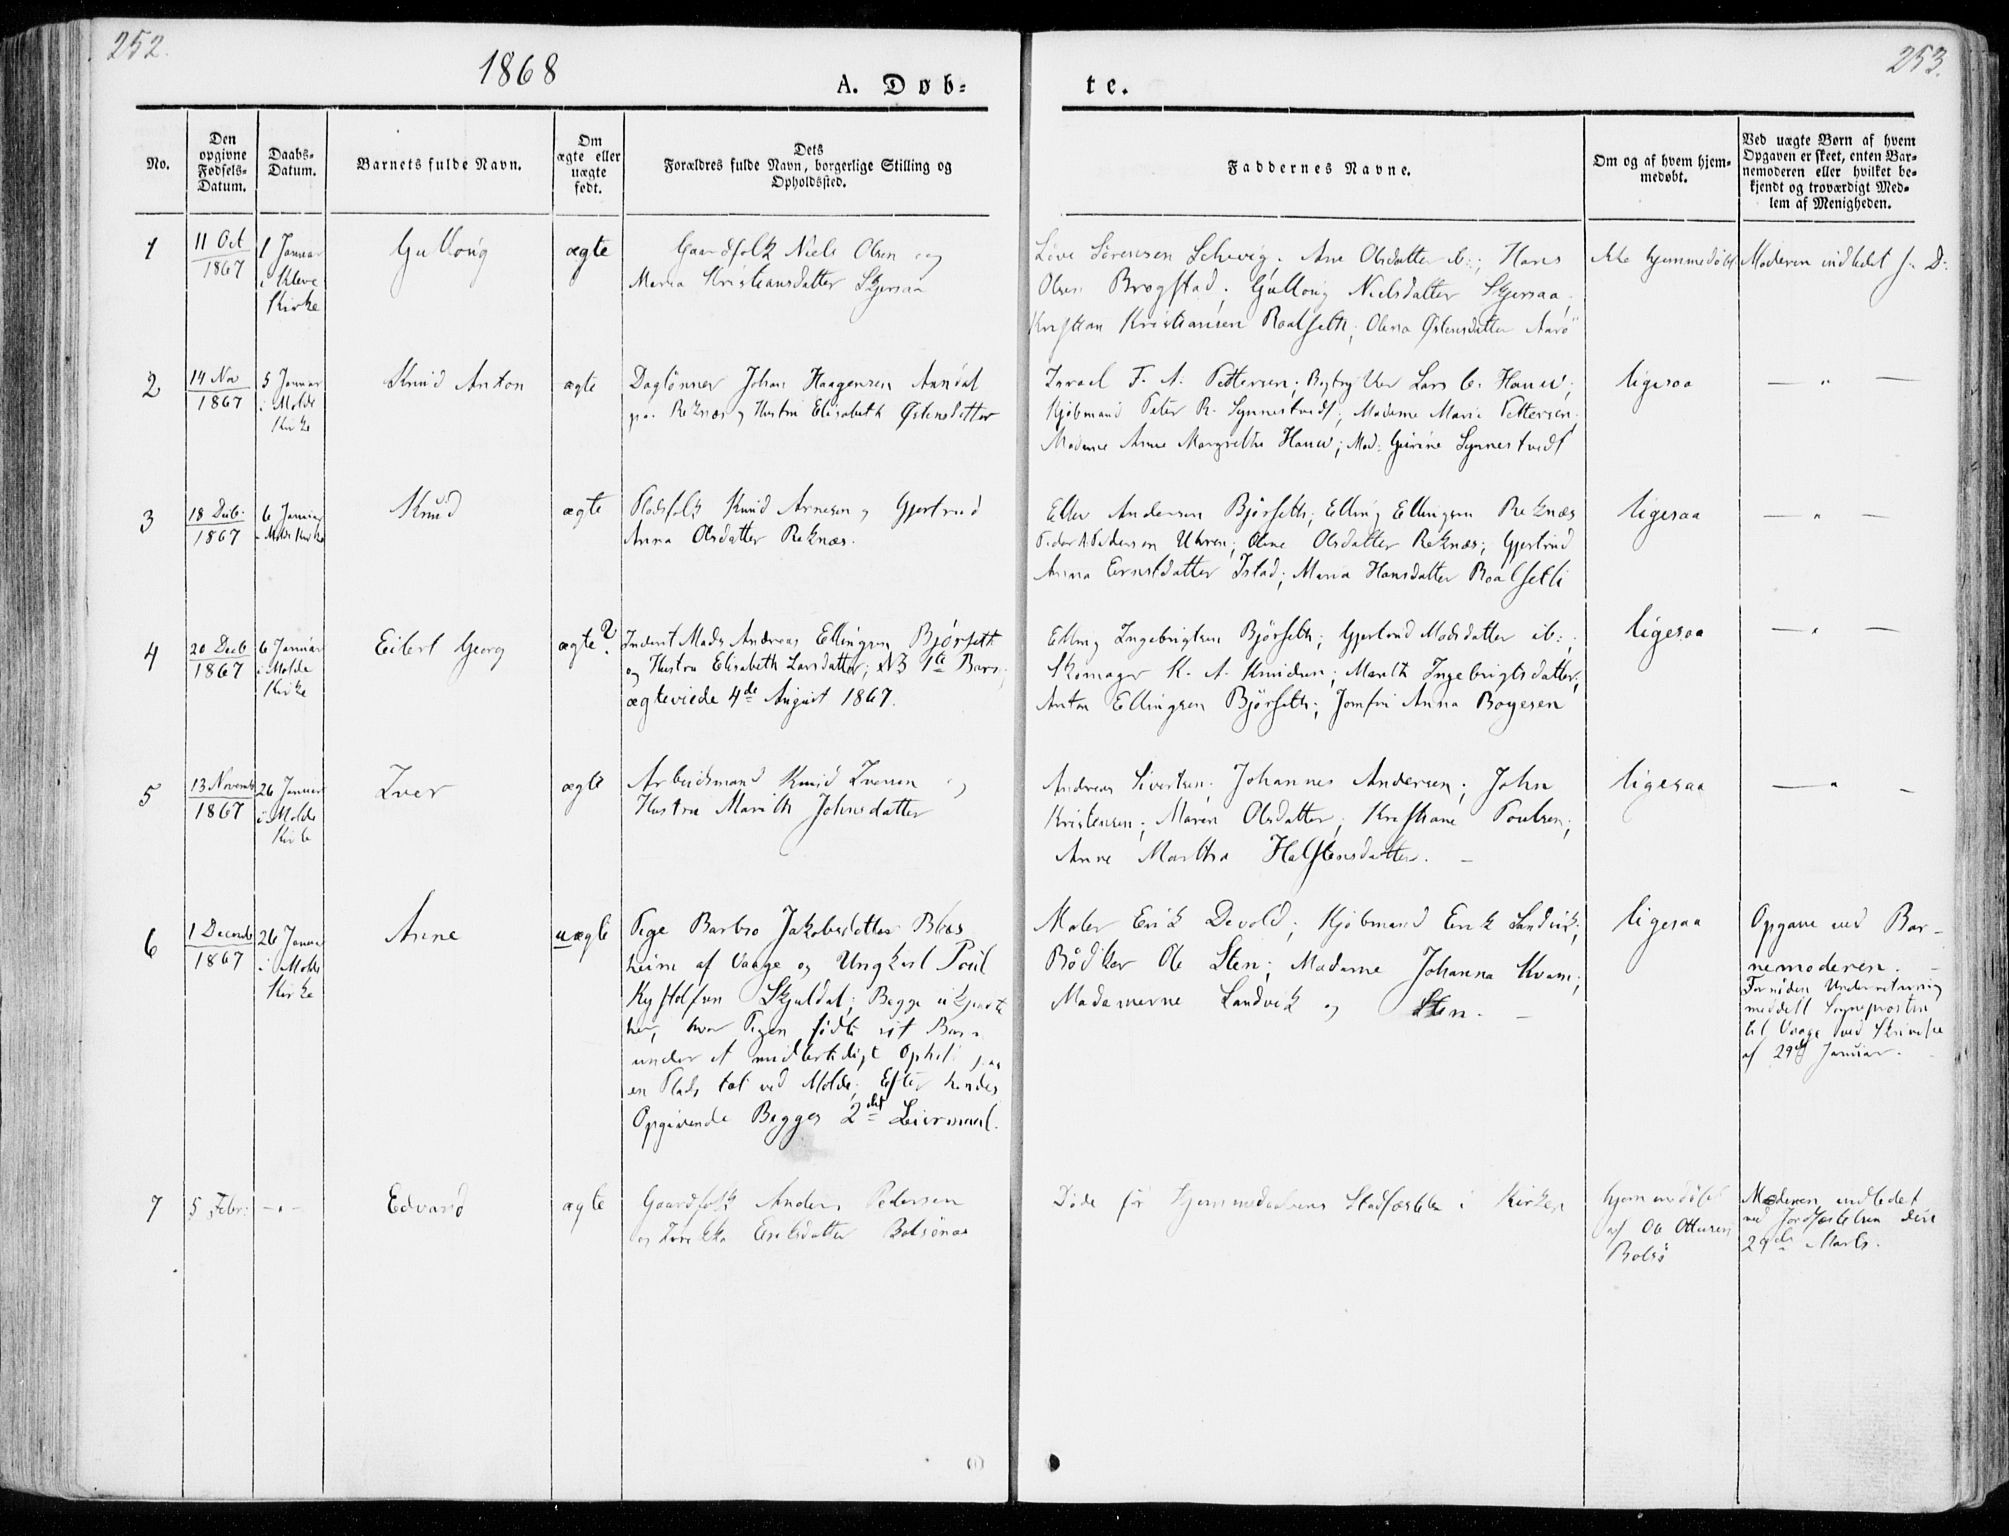 252.
253.
1868
A. Døb-
te.
No.
Den opgivne Fødsels-Datum.
Daabs-Datum.
Barnets fulde Navn.
Om ægte eller uægte født.
Dets Forældres fulde Navn, borgerlige Stilling og Opholdssted.
Faddernes Navne.
Om og af hvem hjem-medøbt.
Ved uægte Børn af hvem Opgaven er skeet, enten Bar-nemoderen eller hvilket be-kjendt og troværdigt Med-lem af Menigheden.
1
11 Oct
1867
1 Januar
i Kleve
Kirke
Gullong
ægte
Gaardfolk Niels Olsen og
Maria Kristiansdatter Skjersaa
Sørensen Ane Olsdatter ib:; Hans
Olsen Brogstad; Gullong Nielsdatter Skjersaa;
Kristian Kristiansen Roalseth; Olena Østensdatter Aarø
ikke hjemmedøbt
Moderen indledet s. D.
2
14 Nov
1867
5 Januar
i Molde
Kirke
Knud Anton
ægte
Daglønner Johan Haagensen
paa Reknæs og Hustru Elisabeth Østensdatter
Israel F. A. Pettersen; Lars C. Hauw;
Kjøbmand Peter R. Synnestvedt; Madame Marie Pettersen;
Madame Anne Margrethe Hauw; Mad: Synnestvedt
ligesaa
— " —
3
18 Decb.
1867
6 Januar
i Molde Kirke
Knud
ægte
Pladsfolk Knud Arnesen og Gjertrud
Anna Olsdatter Reknæs.
Eller Andersen Bjørseth; Elling Ellingsen Reknæs
Peder Pedersen Oline Olsdatter Reknæs; Gjertrud
Anna Ernstdatter Istad; Maria Hansdatter Roalseth
ligesaa
— " —
4
20 Decb
1867
6 Januar
i Molde
Kirke
Eilert Georg
ægte?
Inderst Mads Andreas Ellingsen Bjørseth
og Hustru Elisabeth Larsdatter; NB 1te Barn;
ægteviede 4de August 1867.
Elling Ingebrigtsen Bjørseth; Gjertrud Madsdatter ib:;
Skomager K. A. Knudsen; Marith Ingebrigtsdatter;
Anton Ellingsen Bjørseth; Jomfru Anna Boyesen
ligesaa
— " —
5
13 Novemb
1867
26 Januar
i Molde
Kirke
Iver
ægte
Arbeidsmand Knud Iversen og
Hustru Marith Johnsdatter
Andreas Sivertsen; Johannes Andersen; John
Kristensen; Maren Olsdatter; Kristiane Poulsen;
Anne Martha Halstensdatter. —
ligesaa
— " —
6
1 Decemb
1867
26 Januar
i Molde
Kirke
Anne
uægte
Pige Barbro Jakobsdatter
heim af Vaage og Ungkarl Poul
Skjuldal; Begge ubekjendte
her, hvor Pigen fødte sit Barn
under et midlertidigt Ophold paa
en Plads tæt ved Molde; Efter hendes
Opgivende Begges 2det Leiermaal.
Maler Erik Devold; Kjøbmand Erik Landvik;
Bødker Ole Sten; Madame Johanna Kvam;
Madamerne Landvik og Sten. —
ligesaa
Opgave ved Bar-
nemoderen. —
Fornøden Underretning
meddelt Sognepresten
til Vaage ved Skrivelse
af 29de Januar. —
7
5 Febr:
— " —
Edvard
ægte
Gaardfolk Anders Pedersen
og Eriksdatter Bolsønæs
Døde før Hjemmedaabens Stadfæstelse i Kirken
hjemmedøbt
af Ole Ottesen
Bolsø
Moderen indledet
ved Jordfæstelsen
29de Marts.